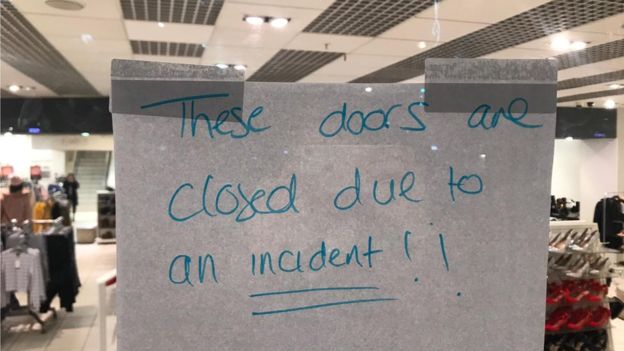 These doors are
closed due to
an incident!!